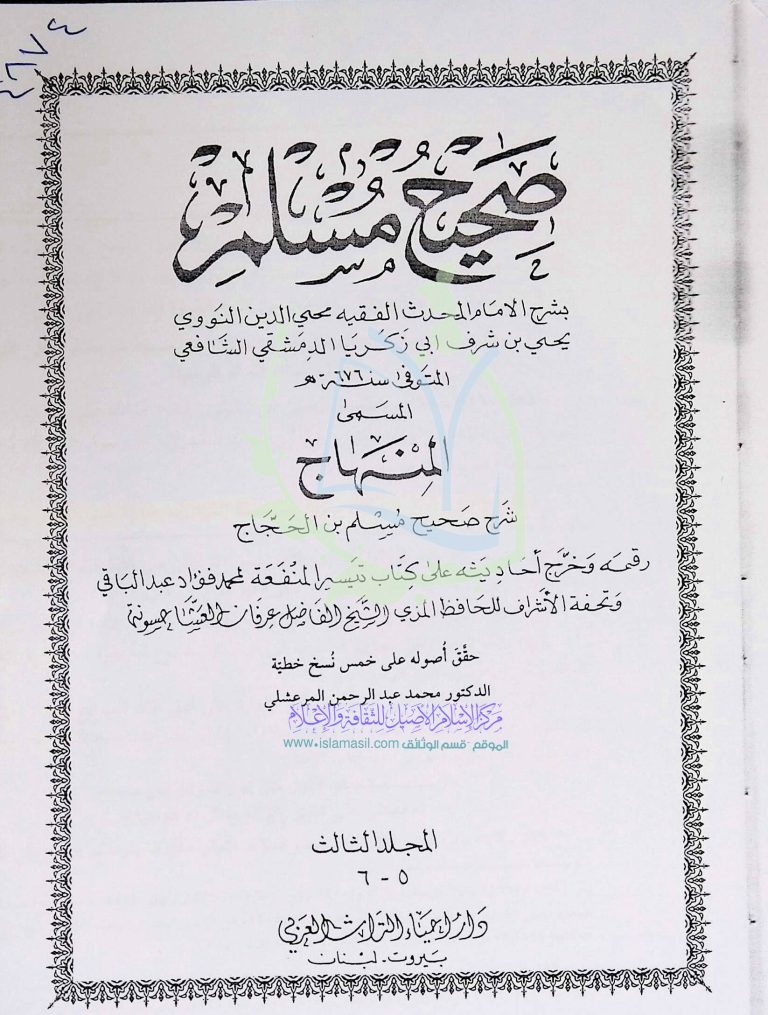 ٤٦٧٤
صَحِيحُ مُسْلِمْ
بشرح الامام المحدث الفقيه محيي الدين النووي
يحيي بن شرف ابي زكريا الدمشقي الشافعي
المتوفى سنة ٦٧٦ هـ
المسمى
المِنهَاج
شرح صحيح مسلم بن الحَجّاج
رقمه وَخرّج أحاديثه على كِتَاب تيسير المنفعَة لمحمد فؤاد عبد الباقي
وتحفة الأشراف للحافظ المزي الشيخ الفاضل عرفان العشا حسونة
حقّق أصوله على خمس نُسخ خطيّة
الدكتور محمد عبد الرحمن المرعشلي
مركز الإسلام الأصيل للثقافة والإعلام
الموقع - قسم الوثائق www.islamasil.com
المجلد الثالث
٥ - ٦
دَار احياء التراث العربي
بيروت - لبنان